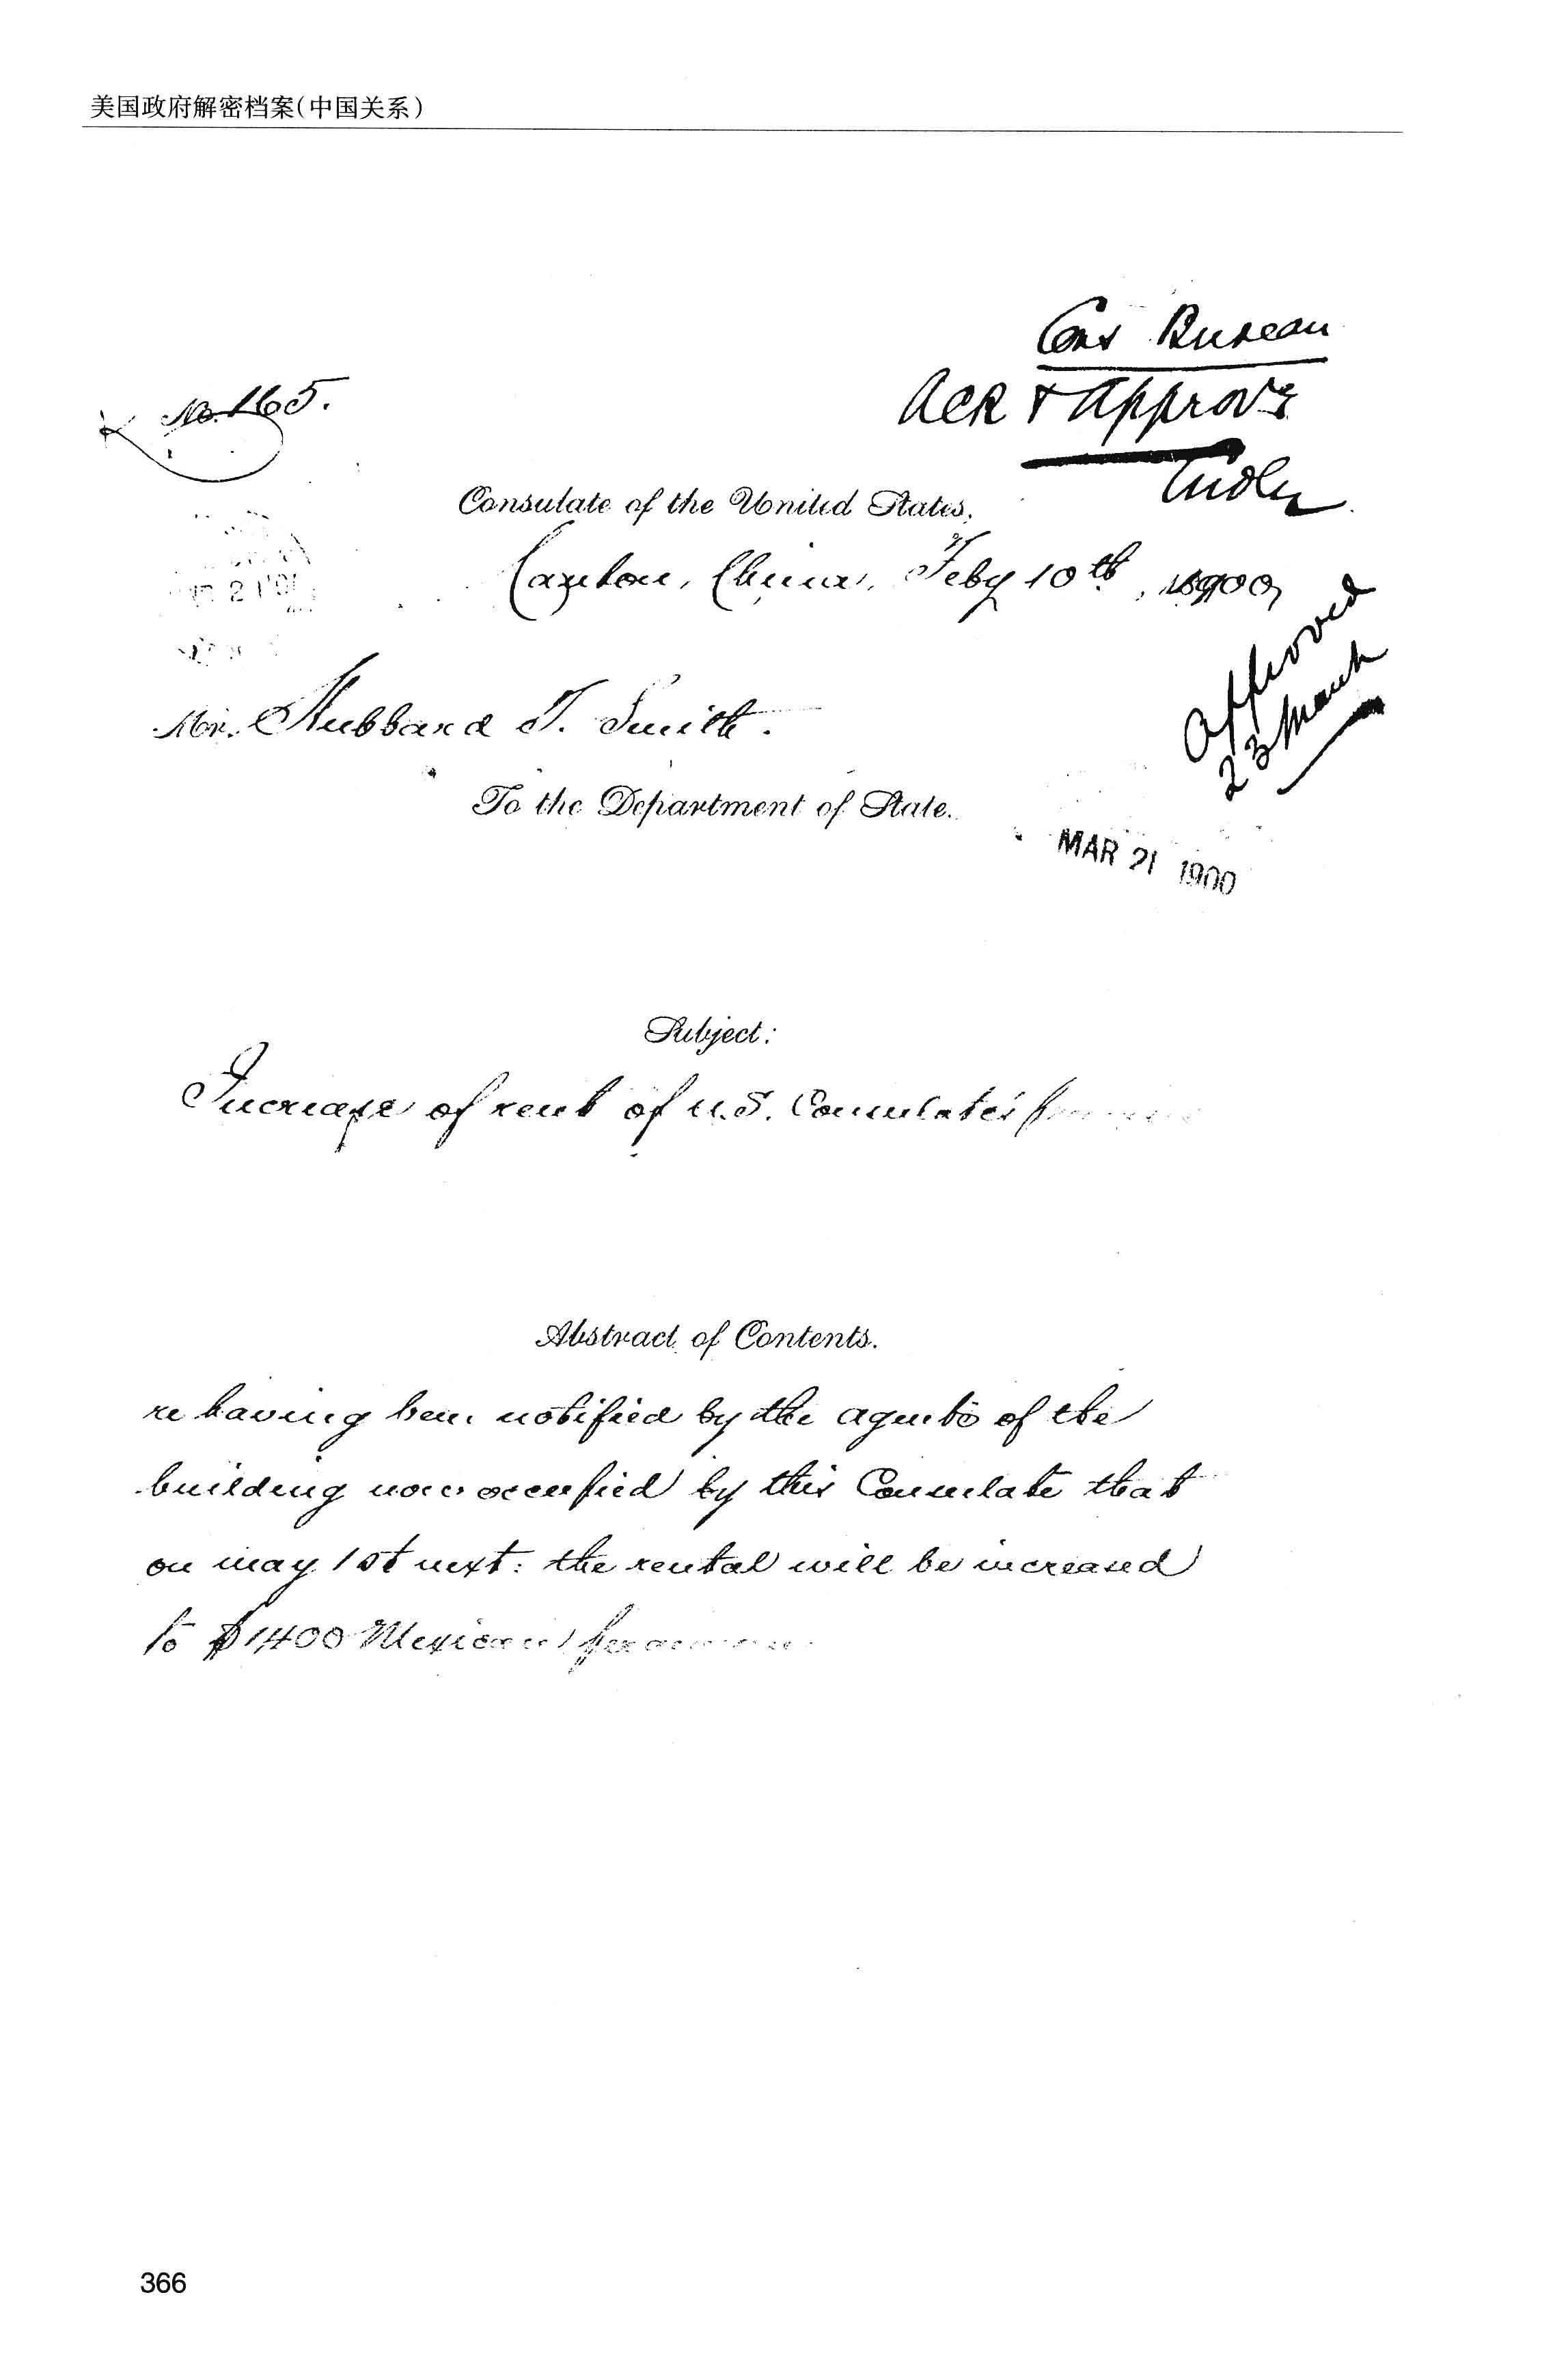 美国政府解密档案(中国关系)
Cons Bureau
No. 165.
Ack & Approve
Consulate of the United States,
Canton, China, Feby 10th, 1900,
Approved
23 March
Mr. Hubbard T. Smith.
To the Department of State.
MAR 21 1900
Subject:
Increase of rent of U.S. Consulate's
Abstract of Contents.
re having been notified by the agents of the
building now occupied by this Consulate that
on may 1st next: the rental will be increased
to $1,400 Mexican per annum
366